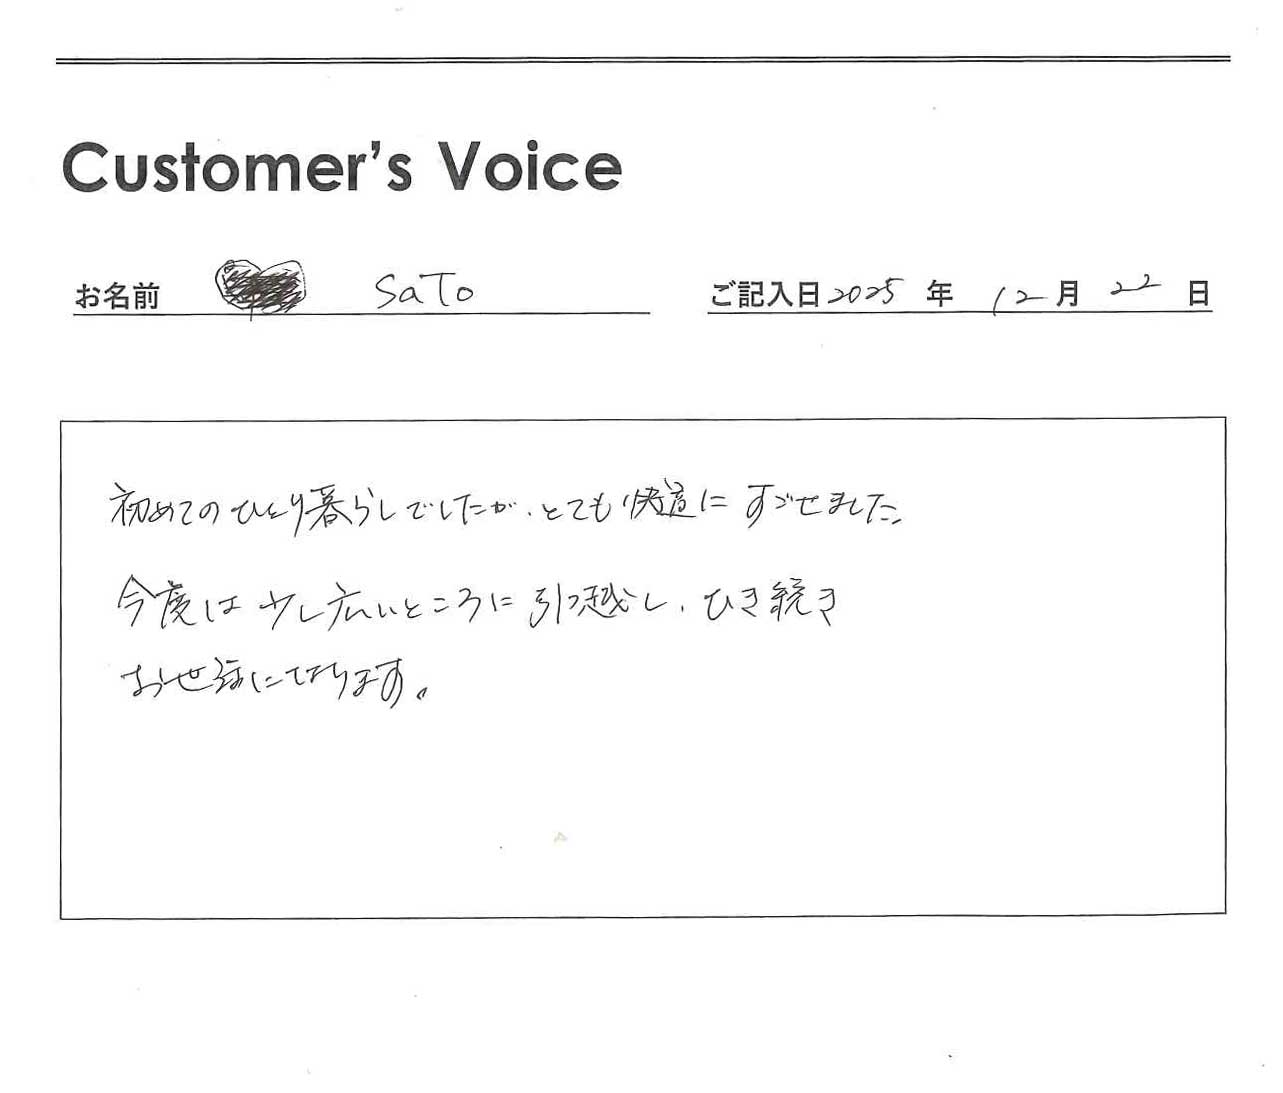 Customer's Voice
お名前 SaTo ご記入日 2025 年 12 月 22 日
初めてのひとり暮らしでしたが、とても快適にすごせました。
今度は少し広いところに引っ越し、ひき続き
お世話になります。